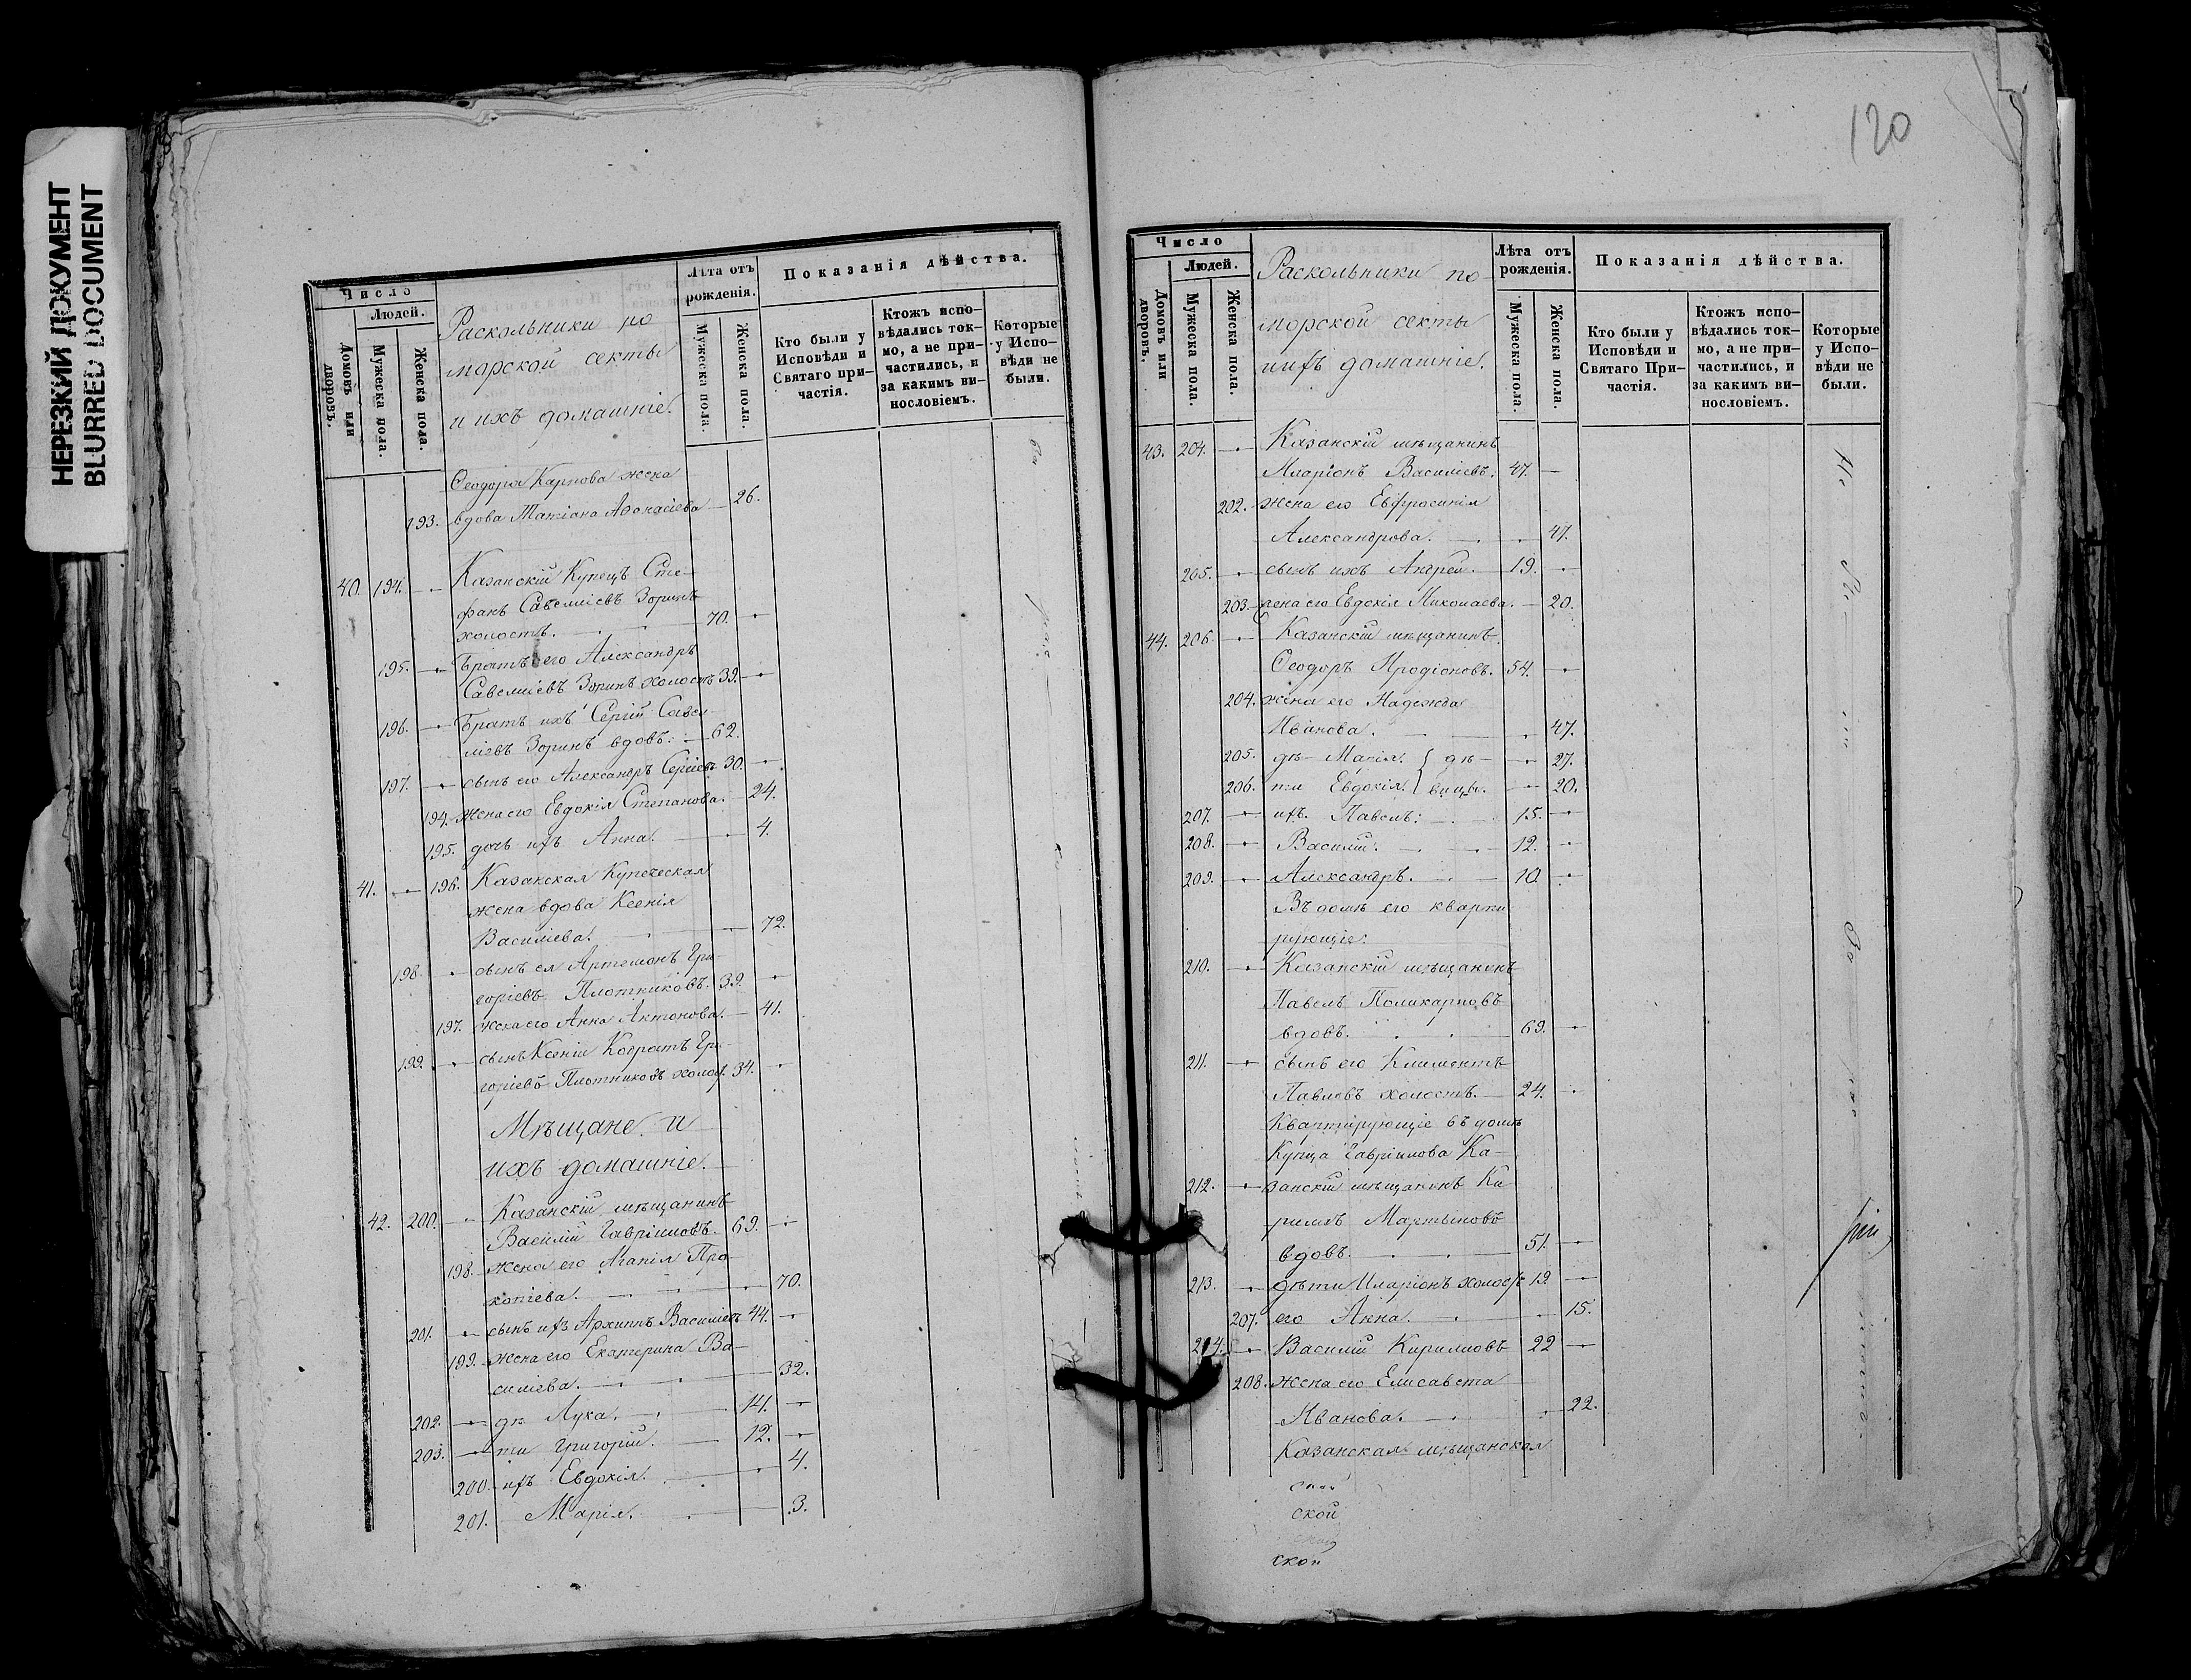 НЕРЕЗКИЙ ДОКУМЕНТ
BLURRED DOCUMENT
Число
Людей.
Домовъ или дворовъ.
Мужеска пола.
Женска пола.
Раскольники по
морской секты
и ихъ домашніе.
Лѣта отъ
рожденія.
Мужеска пола.
Женска пола.
Показанія дѣйства.
Кто были у
Исповѣди и
Святаго при-
частія.
Ктожъ испо-
вѣдались ток-
мо, а не при-
частились, и
за какимъ ви-
нословіемъ.
Которые
у Испо-
вѣди не
были.
Ѳеодора Карпова жена
193. вдова Татіана Аѳонасіева — 26.
40. 194. — Казанскій Купецъ Сте-
фанъ Савеліевъ Зоринъ
холостъ. 70. —
195. — Братъ его Александръ
Савеліевъ Зоринъ холостъ 39. —
196. — Братъ ихъ Сергій Саве-
ліевъ Зоринъ вдовъ: — 62.
197. — сынъ его Александръ Сергіевъ 30. —
194. жена его Евдокія Степанова. — 24.
195. дочь ихъ Анна. — 4.
41. — 196. Казанская Купеческая
жена вдова Ксенія
Василіева. — 72.
198. — сынъ ея Артемонъ Гри-
горіевъ Плотниковъ. 39. —
197. жена его Анна Антонова. — 41.
199. — сынъ Ксеніи Кодратъ Гри-
горіевъ Плотниковъ холос. 34. —
Мѣщане и
ихъ домашніе.
42. 200. — Казанскій мѣщанинъ
Василій Гавріиловъ. 69. —
198. жена его Агапія Про-
копіева. — 70.
201. — сынъ ихъ Архипъ Василіевъ 44. —
199. жена его Екатерина Ва-
силіева. — 32.
202. — дѣ Лука. — 14. —
203. — ти Григорій. — 12. —
200. ихъ Евдокія. — 4.
201. Марія. — 3.
120
Число
Людей.
Домовъ или дворовъ.
Мужеска пола.
Женска пола.
Раскольники по-
морской секты
ихъ домашніе.
Лѣта отъ
рожденія.
Мужеска пола.
Женска пола.
Показанія дѣйства.
Кто были у
Исповѣди и
Святаго При-
частія.
Ктожъ испо-
вѣдались ток-
мо, а не при-
частились, и
за какимъ ви-
нословіемъ.
Которые
у Испо-
вѣди не
были.
43. 204. — Казанскій мѣщанинъ
Иларіонъ Василіевъ. 47. —
202. жена его Евфросинія
Александрова. — 47.
205. — сынъ ихъ Андрей. 19. —
203. жена его Евдокія Николаева. — 20.
44. 206. — Казанскій мѣщанинъ
Ѳеодоръ Иродіоновъ. 54. —
204. жена его Надежда
Иванова. — 47.
205. дѣ— Марія. } дѣ— — 27.
206. ти Евдокія. } вицы. — 20.
207. — ихъ Павелъ: — 15. —
208. — Василій. — 12. —
209. — Александръ. — 10. —
Въ домѣ его кварти
рующіе:
210. — Казанскій мѣщанинъ
Павелъ Поликарповъ
вдовъ. 69. —
211. — сынъ его Климентъ
Павловъ холостъ. — 24. —
Квартирующіе въ домѣ
Купца Гавріилова Ка-
212. — занскій мѣщанинъ Ки
рилъ Мартыновъ
вдовъ. — 51. —
213. — дѣти Иларіонъ холостъ 19. —
207. его Анна. — 15.
214. — Василій Кириловъ 22 —
208. жена его Елисавета
Иванова. — 22.
Казанская мѣщанская
ской
ской